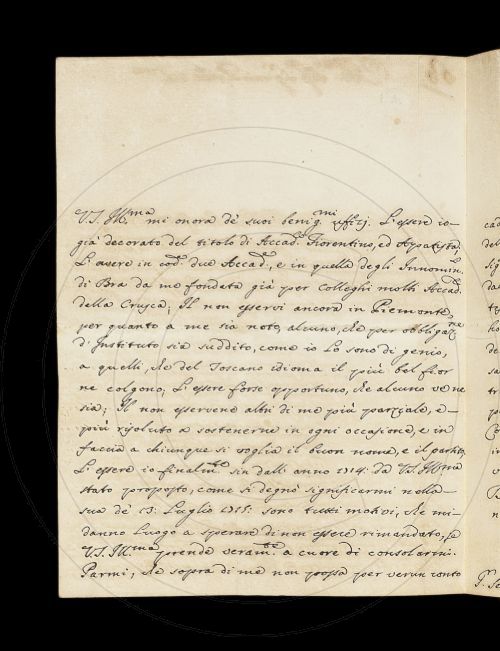 V. S. Ill.ma mi onora de' suoi benig.mi uffizj. L'essere io
già decorato del titolo di Accad.co Fiorentino, ed Apatista;
L'avere in cod.e due Accad.e, e in quella degli Innomin.ti
di Bra da me fondata già per Colleghi molti Accad.ci
della Crusca; Il non esservi ancora in Piemonte,
per quanto a me sia noto, alcuno, che per obbligaz.ne
d'Instituto sia suddito, come io lo sono di genio,
a quelli, che del Toscano idioma il più bel fior
ne colgono; L'essere forse opportuno, che alcuno ve ne
sia; Il non esservene altri di me più parziale, e
più risoluto a sostenerne in ogni occasione, e in
faccia a chiunque si voglia il buon nome, e il partito;
L'essere io finalm.te sin dall'anno 1714: da V. S. Ill.ma
stato proposto, come si degnò significarmi nella
sua de' 13: Luglio 1715: sono tutti motivi, che mi
danno luogo a sperare di non essere rimandato, se
V. S. Ill.ma prende veram.te a cuore di consolarmi.
Parmi, che sopra di me non possa per verun conto